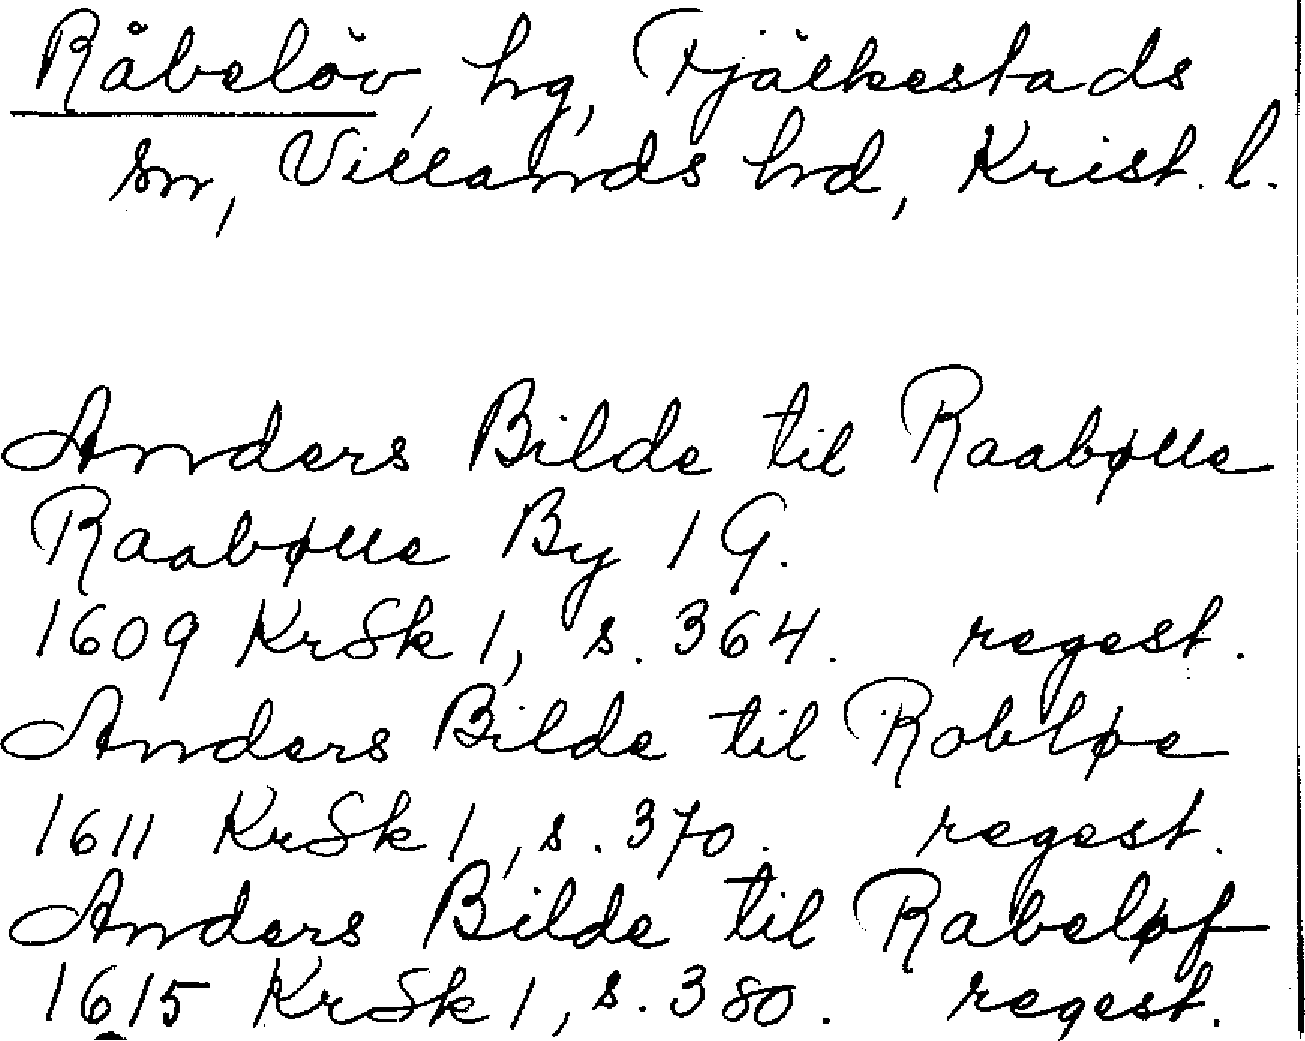 Råbelöv, hg, Fjälkestads
sn, Villands hd, Krist. l.
Anders Bilde til Raabølle
Raabølle By 1 G.
1609 KrSk 1, s. 364. regest.
Anders Bilde til Robløe
1611 KrSk 1, s. 370. regest.
Anders Bilde til Rabeløf
1615 KrSk 1, s. 380. regest.